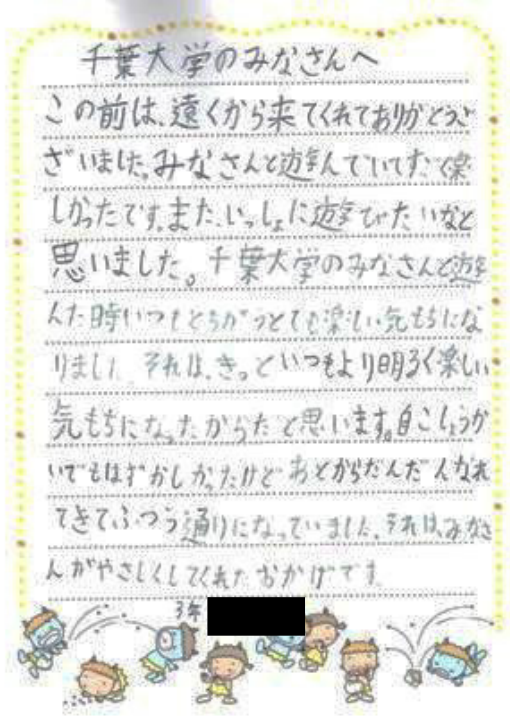 千葉大学のみなさんへ
この前は、遠くから来てくれてありがとうご
ざいました。みなさんと遊んでいてすごく楽
しかったです。また、いっしょに遊びたいなと
思いました。千葉大学のみなさんと遊
んだ時いつもとちがうとても楽しい気もちにな
りました。それは、きっといつもより明るく楽しい
気もちになったからだと思います。自こしょうか
いでもはずかしかったけどあとからだんだんなれ
てきてふつう通りになっていました。それは、みなさ
んがやさしくしてくれたおかげです
3年